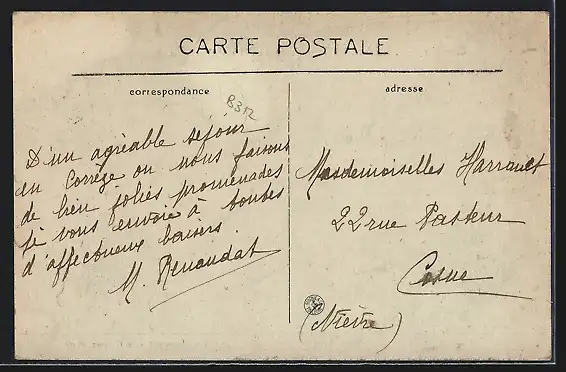 CARTE POSTALE
correspondance
adresse
B312
D'un agréable séjour
en Corrèze ou nous faisons
de bien jolies promenades
je vous envoie à toutes
d'affectueux baisers.
M. Renaudat
Mesdemoiselles Harrault
22 rue Pasteur
Cosne
(Nièvre)